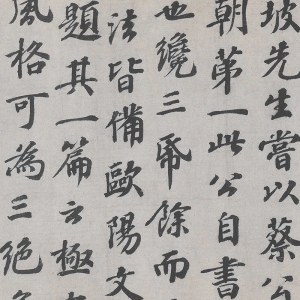 坡先生嘗以蔡公
朝第一此公自書
也纔三帋餘而
法皆備歐陽文
題其一篇云極
風格可為三絶